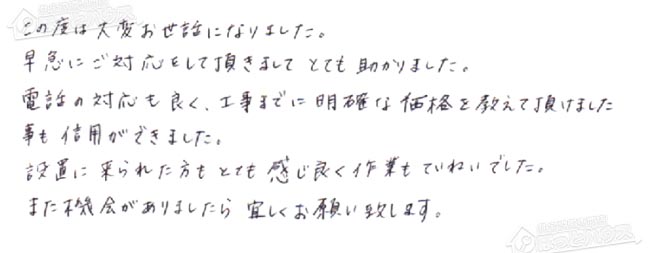 この度は大変お世話になりました。
早急にご対応をして頂きまして とても 助かりました。
電話の対応も良く、工事までに明確な価格を教えて頂けました
事も信用ができました。
設置に来られた方もとても 感じ良く作業もていねいでした。
また機会がありましたら 宜しくお願い致します。